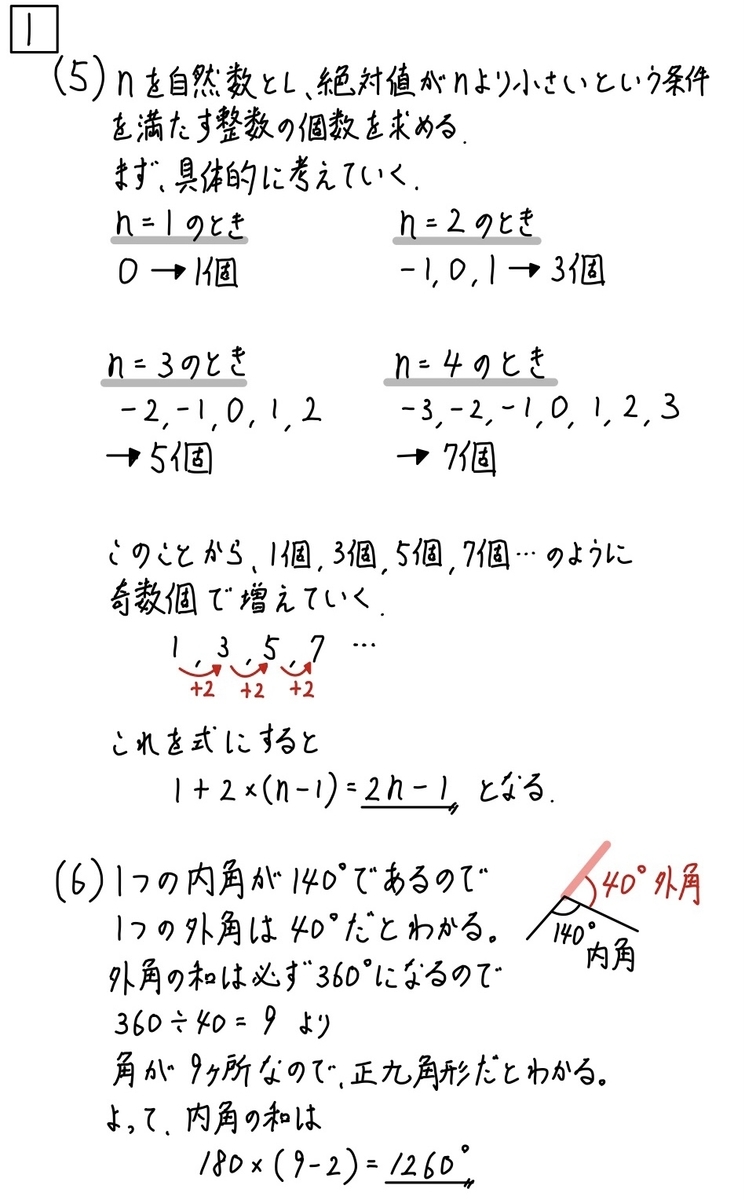 1
(5) nを自然数とし、絶対値がnより小さいという条件
を満たす整数の個数を求める.
まず、具体的に考えていく.
n=1のとき
0→1個
n=2のとき
-1,0,1→3個
n=3のとき
-2,-1,0,1,2
→5個
n=4のとき
-3,-2,-1,0,1,2,3
→7個
このことから、1個,3個,5個,7個…のように
奇数個で増えていく.
1,3,5,7 …
+2 +2 +2
これを式にすると
1+2×(n-1)=2n-1 となる.
(6) 1つの内角が140°であるので
1つの外角は40°だとわかる。
外角の和は必ず360°になるので
360÷40=9 より
角が9ヶ所なので、正九角形だとわかる。
よって、内角の和は
180×(9-2)=1260°
40°外角
140°
内角